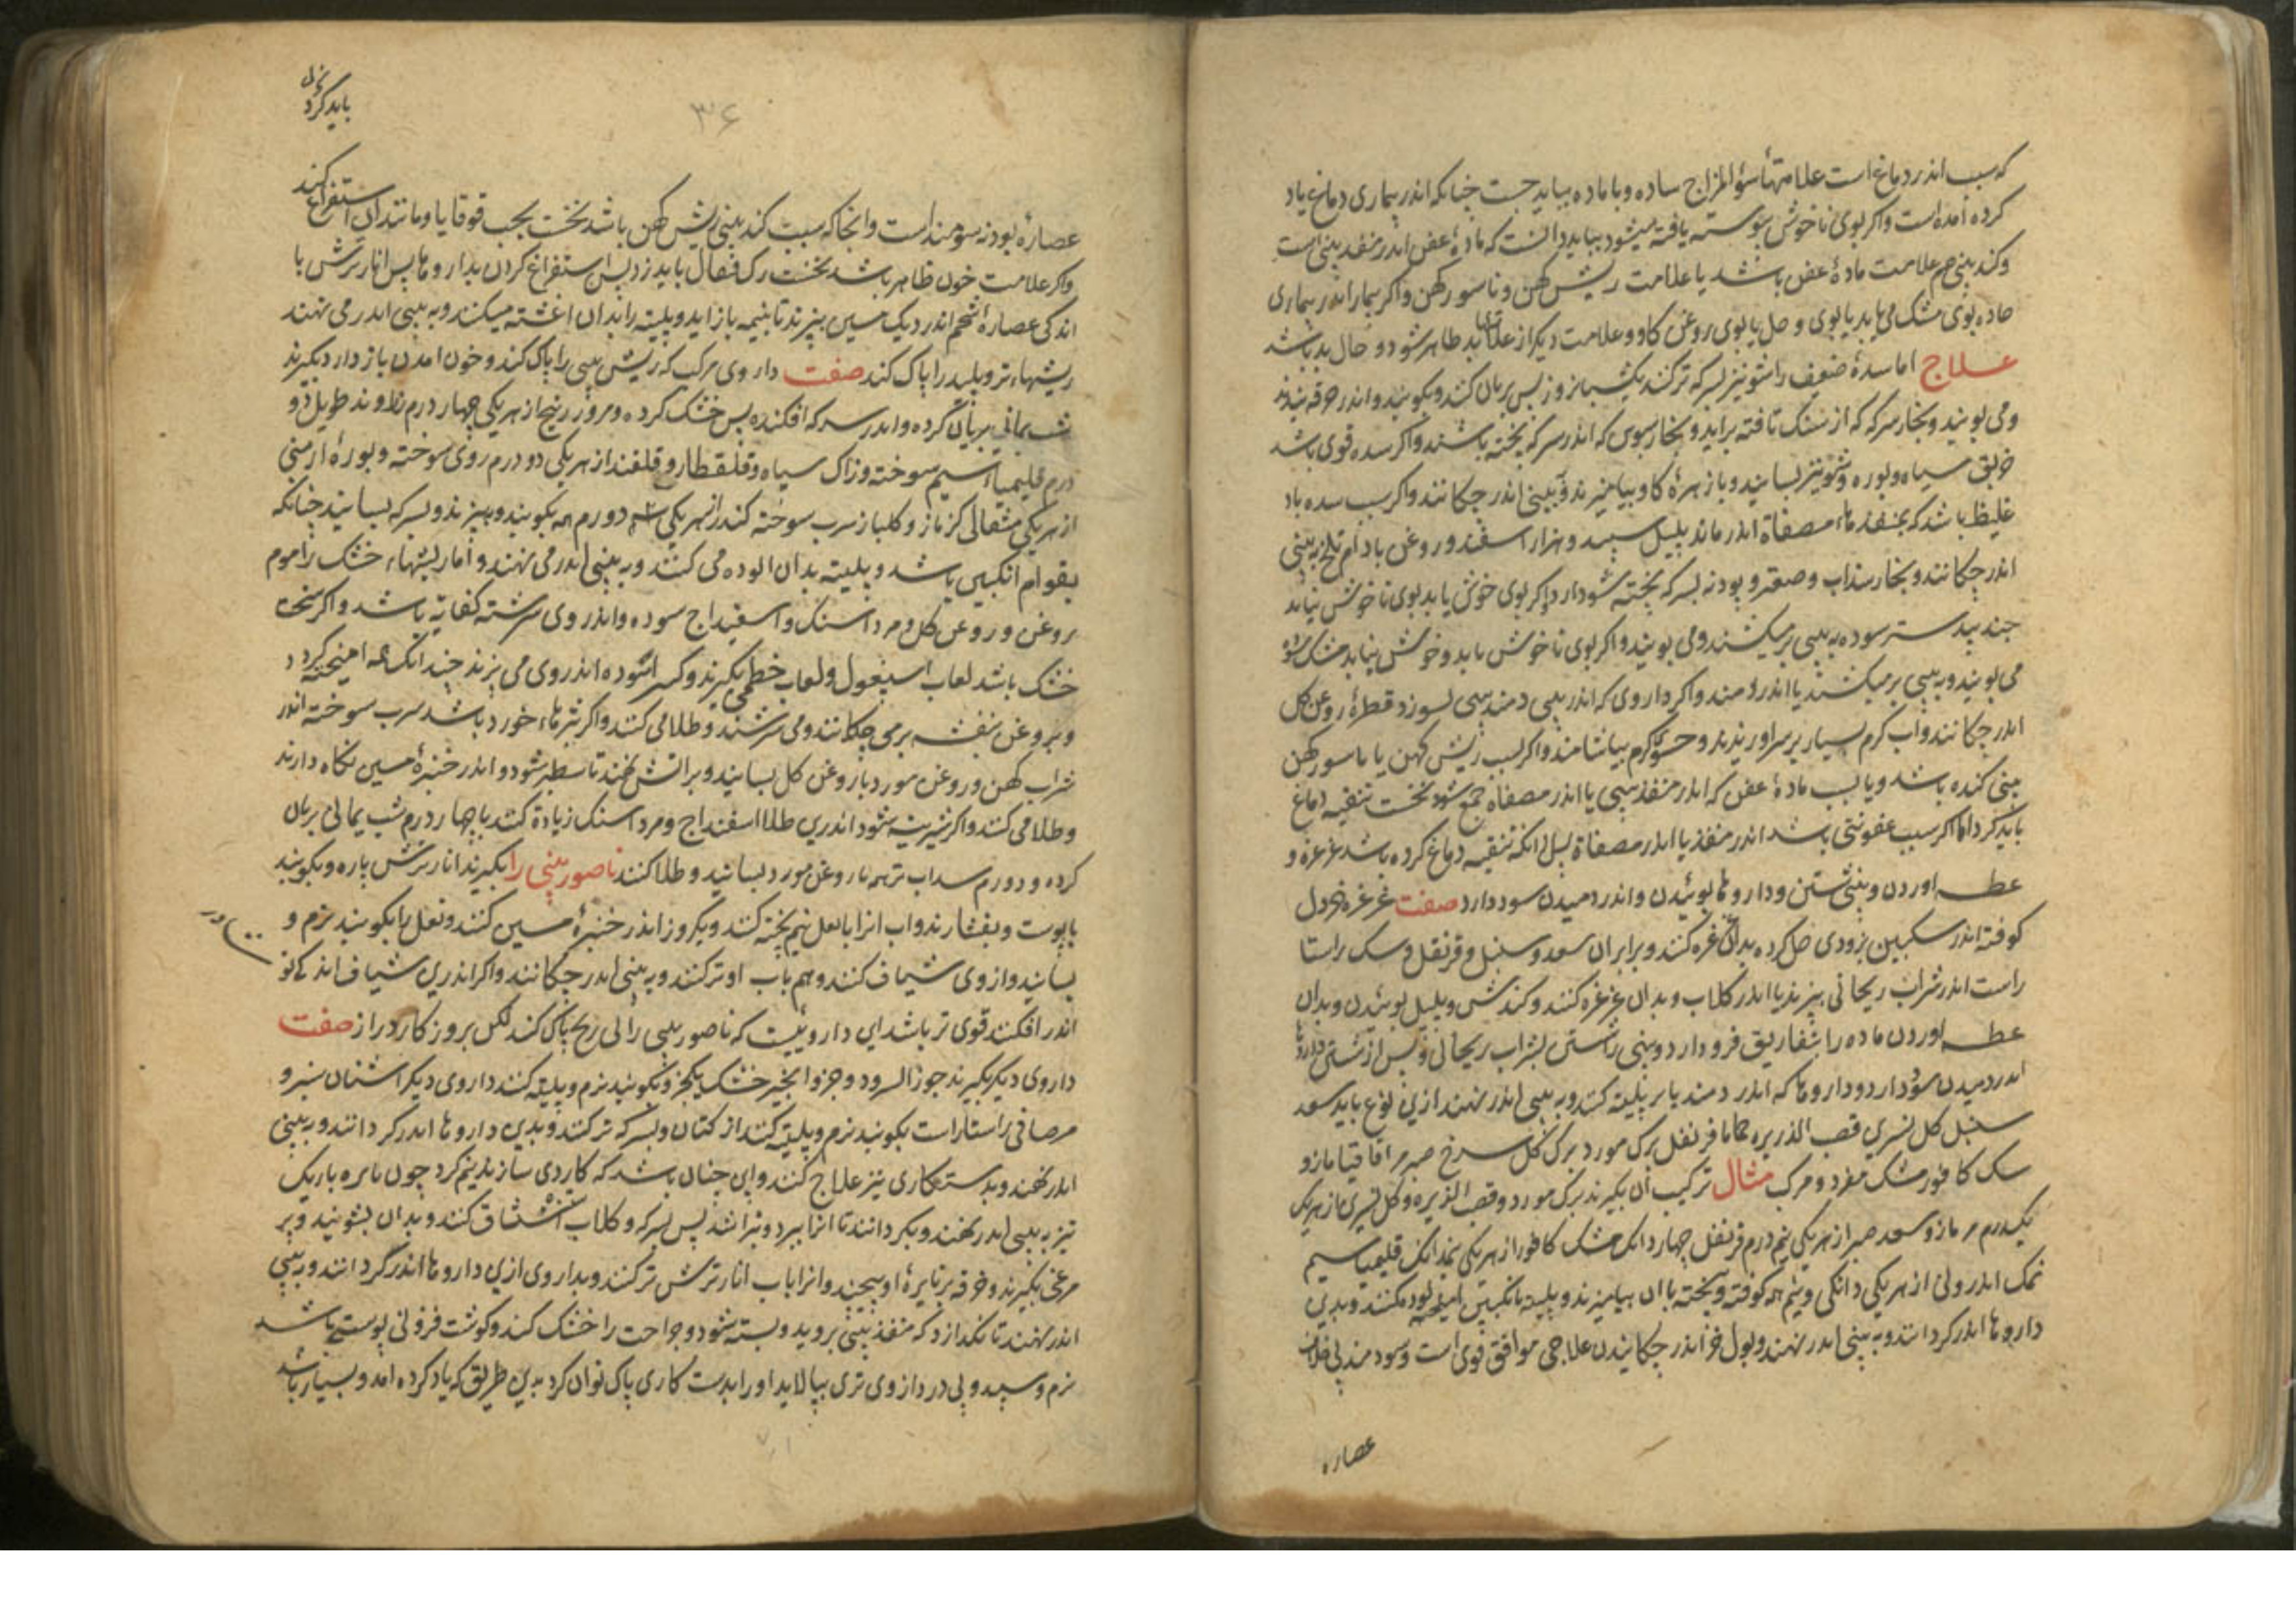 که سبب اندر دماغ است علامتهاء سؤ المزاج ساده و با ماده بباید جست چنانکه اندر بیماری دماغ یاد
کرده آمده است واکر بوی ناخوش پیوسته یافته میشود بباید دانست که مادهٔ عفن اندر منفذ بینی است
وکند بینی هم علامت مادهٔ عفن باشد یا علامت ریش کهن و ناسور کهن واکر بیمار اندر بیماری
حاده بوی مشک می یابد یا بوی وحل یا بوی روغن کاو و علامت دیکر از علامتهای بد ظاهر شود و حال بد باشد
علاج اما سدهٔ ضعیف را شونیز بسرکه تر کنند یکشبانروز پس بریان کنند و بکوبند و اندر خرقه بندند
ومی بویند و بخار سرکه که از سنک تافته براید و بخار سبوس که اندر سرکه پخته باشند واکر سده قوی باشد
خربق سیاه و بوره و شونیز بسایند و با زهرهٔ کاو بیامیزند و به بینی اندر چکانند واکر سبب سده باد
غلیظ باشد که بمنفذهاء مصفاة اندر ماند پلپل سپید و هزار اسفند و روغن بادام تلخ به بینی
اندر چکانند و بخار سنداب و صعتر و پودنه بسرکه پخته سود دارد واکر بوی خوش یابد بوی ناخوش نیابد
جندبیدستر سوده به بینی برمیکشند ومی بویند واکر بوی ناخوش یابد وخوش نیابد مشک سوده
می بویند و به بینی برمیکشند یا اندر دمند واکر داروی که اندر بینی دمند بینی بسوزد قطرهٔ روغن کل
اندر چکانند واب کرم بسیار بر سر اورندند و حسوء کرم بیاشامند واکر سبب ریش کهن یا ناسور کهن
بینی کنده باشد و یا سبب مادهٔ عفن که اندر منفذ بینی یا اندر مصفاه جمع شود نخست تنقیه دماغ
باید کرد اما اکر سبب عفونتی باشد اندر منفذ یا اندر مصفاة پس از انکه تنقیه دماغ کرده باشد غرغره و
عطسه اوردن و بینی شستن و داروها بوئیدن و اندر دمیدن سود دارد صفت غرغره خردل
کوفته اندر سکنکبین بزودی حل کرده بدان غرغره کنند و برابر ان سعد و سنبل و قرنفل و سک راستا
راست اندر شراب ریحانی بپزند یا اندر کلاب و بدان غرغره کنند و کندش و پلپل بوئیدن و بدان
عطسه اوردن ماده را بتفاریق فرو دارد و بینی را شستن بشراب ریحانی و پس از شستن داروها
اندر دمیدن سود دارد و داروها که اندر دمند یا بر پلیته کنند و به بینی اندر نهند ازین نوع باید سعد
سنبل کل نسرین قصب الذریره حماما قرنفل برک مورد برک کل سرخ صبر مر اقاقیا مازو
سک کافور مشک مفرد و مرکب مثال ترکیب ان بکیرند برک مورد و قصب الذریره و کل نسرین از هریک
یکدرم مر مازو سعد صبر از هریکی نیم درم قرنفل چهار دانک مشک کافور از هریکی نیمدانک قلیمیا سیم
نمک اندرونی از هریکی دانکی و نیم همه کوفته و پخته با ان بیامیزند و پلیته بانکبین الوده کنند و بدین
داروها اندر کردانند و به بینی اندر نهند و بول خر اندر چکانیدن علاجی موافق قوی است و سودمند بی خلاف
عصاره
باید کرد
۳۶
عصارهٔ پودنه سودمند است وانجا که سبب کند بینی ریش کهن باشد نخست بحب قوقایا ومانند ان استفراغ کنند
واکر علامت خون ظاهر باشد نخست رک قیفال باید زد پس استفراغ کردن بداروها پس انار ترش با
اندکی عصارهٔ شحم اندر دیک مسین بپزند تا بنیمه باز اید و پلیته را بدان اغشته میکنند و به بینی اندر می نهند
ریشهاء تر و پلید را پاک کند صفت داروی مرکب که ریش بینی را پاک کند و خون امدن باز دارد بکیرند
شب یمانی بریان کرده و اندر سرکه افکنده پس خشک کرده ومر و زرنیخ از هریکی چهار درم زراوند طویل دو
درم قلیمیاء سیم سوخته و زاک سیاه و قلقطار و قلقند از هریکی دو درم روی سوخته و بورهٔ ارمنی
از هریکی مثقالی کزمازو کلنار سرب سوخته کندر از هریکی سه درم همه بکوبند و بپزند و بسرکه بسایند چنانکه
بقوام انکبین باشد و پلیته بدان الوده می کنند و به بینی اندر می نهند و اما ریشهاء خشک را موم
روغن و روغن کل و مرداسنک و اسفیداج سوده و اندر وی سرشته کفایة باشد واکر سخت
خشک باشد لعاب اسپغول و لعاب خطمی بکیرند و کسر اسوده اندر وی می پزند چندانک همه امیخته کردد
و بروغن بنفشه برمی چکانند و می سرشند و طلا می کنند واکر بثرهاء خورد باشد سرب سوخته اندر
شراب کهن و روغن مورد یا روغن کل بسایند و بر اتش نهند تا سطبر شود و اندر خنبرهٔ مسین نکاه دارند
و طلا می کنند واکر بثر بیشتر شود اندرین طلا اسفیداج و مرداسنک زیادة کنند با چهار درم شب یمانی بریان
کرده و دو درم سداب تر همه با روغن مورد بسایند و طلا کنند ناصور بینی را بکیرند انار ترش پاره و بکوبند
با پوست و بفشارند واب انرا با ثفل نیم پخته کنند و یکروز اندر خنبرهٔ مسین کنند و ثفل را بکوبند نرم و
بسایند و از وی شیاف کنند و هم باب او تر کنند و به بینی اندر چکانند واکر اندرین شیاف اندکی نو
اندر افکنند قوی تر باشد این داروئیست که ناصور بینی را بی رنج پاک کند لکن بروز کار دراز صفت
داروی دیکر بکیرند جوز السرو دو جزو انجیر خشک یکجزو بکوبند نرم و پلیته کنند داروی دیکر اشنان سبز و
مر صافی راستا راست بکوبند نرم و پلیته کنند از کتان و بسرکه تر کنند و بدین داروها اندر کردانند و به بینی
اندر نهند و بدستکاری نیز علاج کنند و این چنان باشد که کاردی سازند نیم کرد چون نایره باریک
تیز به بینی اندر نهند و بکردانند تا انرا ببرد و بتراشد پس بسرکه و کلاب استنشاق کنند و بدان بشویند و پر
مرغی بکیرند و خرقه بر نایرهٔ او پیچند و انرا باب انار ترش تر کنند و بداروی ازین داروها اندر کردانند و به بینی
اندر نهند تا نکدارد که منفذ بینی بروید و بسته شود و جراحت را خشک کند و کوشت فزونی پوستی باشد
نرم و سپید و بی درد از وی تری بپالاید او را بدست کاری پاک توان کرد بدین طریق که یاد کرده امد و بسیار باشد